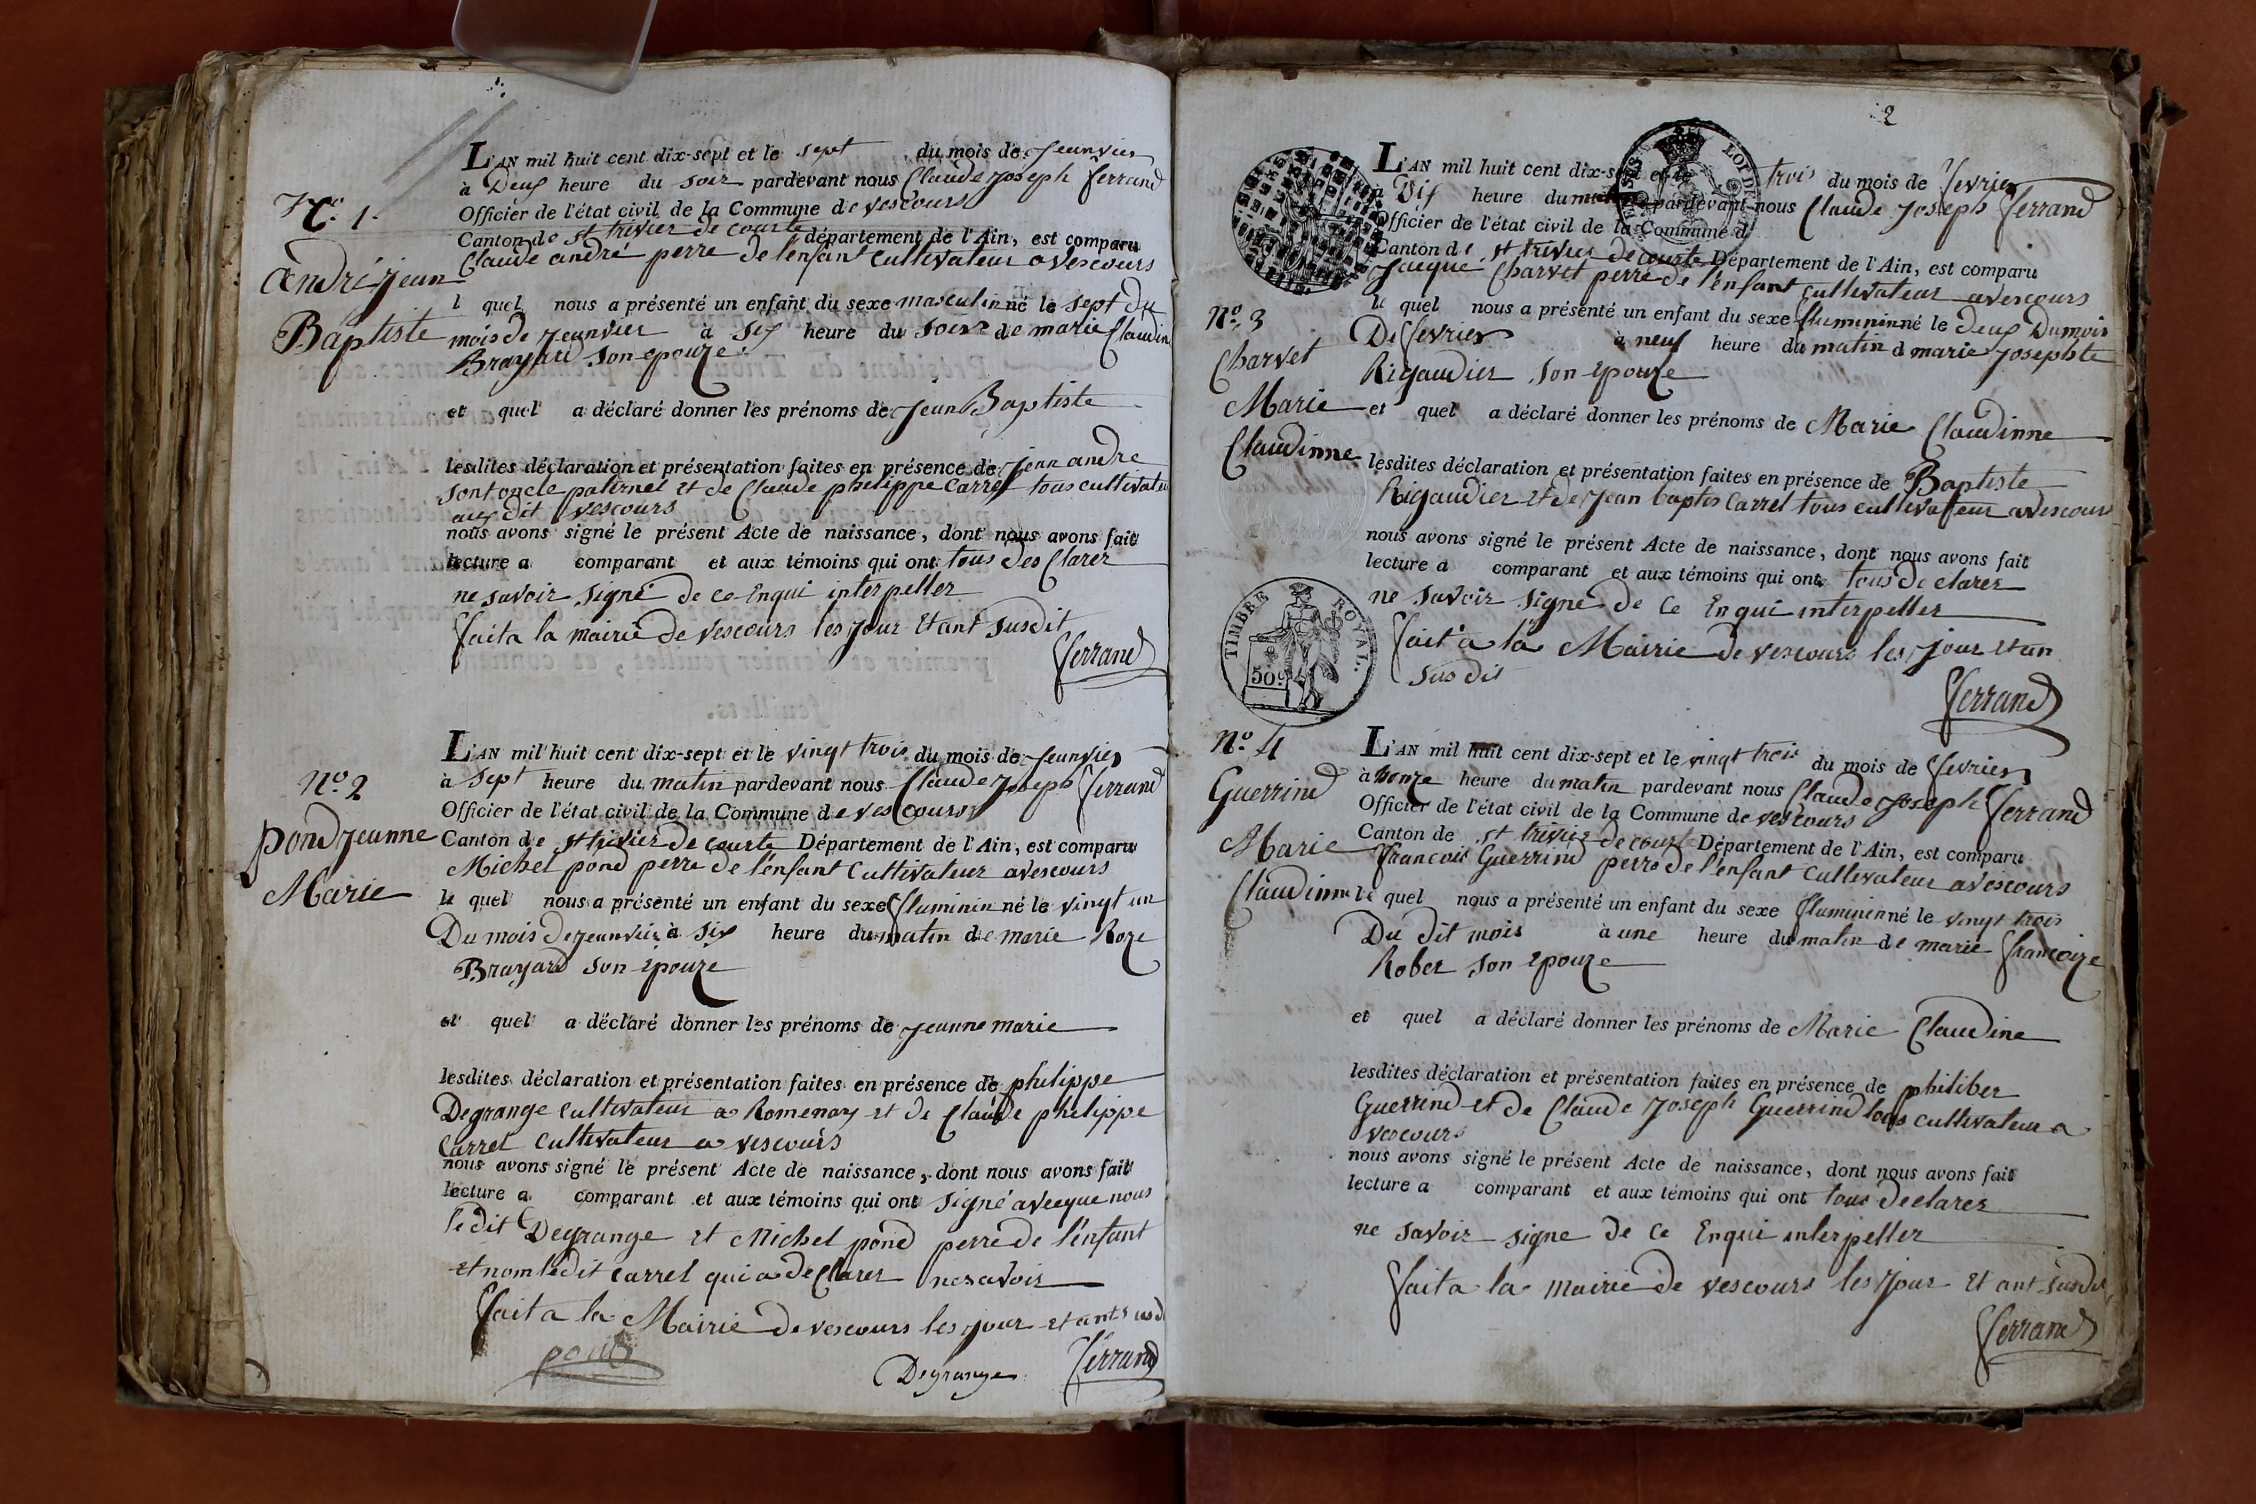 N.º 1.
André jean
Baptiste
L'AN mil huit cent dix-sept et le sept du mois de jeunvier
à Deux heure du soir pardevant nous Claude Joseph ferrand
Officier de l'état civil de la Commune de vescours
Canton de st trivier de courte département de l'Ain, est comparu
Claude andré perre de l'enfant cultivateur a vescours
l quel nous a présenté un enfant du sexe masculin né le sept du
mois de jeunvier à six heure du soire de marie Claudin
Brayard son epouze
et quel a déclaré donner les prénoms de jean Baptiste
lesdites déclaration et présentation faites en présence de jean andre
sont oncle paternel et de Claude philippe Carrel tous cultivateu
aux dit vescours
nous avons signé le présent Acte de naissance, dont nous avons fait
lecture a comparant et aux témoins qui ont tous des Clarer
ne savoir signé de ce Enqui interpeller
fait a la mairie de vescours les jour et ant susdit
ferrand
N.º 2
pond jeanne
Marie
L'AN mil huit cent dix-sept et le vingt trois du mois de jeunvier
à sept heure du matin pardevant nous Claude Joseph ferrand
Officier de l'état civil de la Commune de vescours
Canton de st trivier de courte Département de l'Ain, est comparu
Michel pond perre de l'enfant Cultivateur a vescours
le quel nous a présenté un enfant du sexe fluminin né le vingt un
Du mois de jeunvier à six heure du matin de marie Roze
Brayard son Epouze
et quel a déclaré donner les prénoms de jeanne marie
lesdites déclaration et présentation faites en présence de philippe
Degrange cultivateur a Romenay et de Claude philippe
Carrel Cultivateur a vescours
nous avons signé le présent Acte de naissance, dont nous avons fait
lecture a comparant et aux témoins qui ont signé avecque nous
le dit Degrange et Michel pond perre de l'enfant
et nom ledit Carrel qui a de Clarer ne savoir
fait a la Mairie de vescours les jour et ant susd
pond Degrange ferrand
2
N.º 3
Charvet
Marie
Claudinne
L'AN mil huit cent dix-sept et le trois du mois de fevrier
à Dix heure du matin pardevant nous Claude Joseph ferrand
Officier de l'état civil de la Commune d
Canton de st trivier de courte Département de l'Ain, est comparu
Jacque Charvet perre de l'enfant cultivateur a vescours
le quel nous a présenté un enfant du sexe fluminin né le deux Du mois
De fevrier à neuf heure du matin d marie josephte
Rigaudier son Epouze
et quel a déclaré donner les prénoms de Marie Claudinne
lesdites déclaration et présentation faites en présence de Baptiste
Rigaudier et de jean baptis Carrel tous cultivateur a vescours
nous avons signé le présent Acte de naissance, dont nous avons fait
lecture a comparant et aux témoins qui ont tous de clarer
ne savoir signe de Ce Enqui interpeller
fait a la Mairie de vescours les jour et an
susdit
ferrand
TIMBRE ROYAL.
50c
N.º 4
Guerrind
Marie
Claudinne
L'AN mil huit cent dix-sept et le vingt trois du mois de fevrier
à honze heure du matin pardevant nous Claude Joseph ferrand
Officier de l'état civil de la Commune de vescours
Canton de st trivier de courte Département de l'Ain, est comparu
francois Guerrind perre de l'enfant cultivateur a vescours
le quel nous a présenté un enfant du sexe fluminin né le vingt trois
Du dit mois à une heure du matin de marie francoize
Rober son Epouze
et quel a déclaré donner les prénoms de Marie Claudine
lesdites déclaration et présentation faites en présence de philiber
Guerrind et de Claude Joseph Guerrind tous cultivateur a
vescours
nous avons signé le présent Acte de naissance, dont nous avons fait
lecture a comparant et aux témoins qui ont tous declarer
ne savoir signe de Ce Enqui interpeller
fait a la mairie de vescours les jour et ant susdit
ferrand